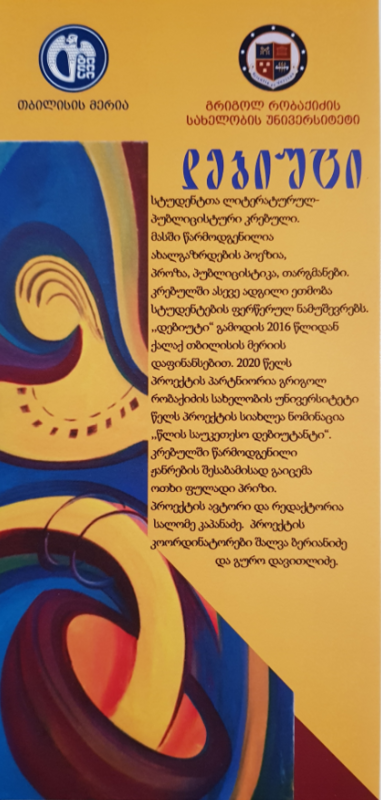 თბილისის მერია
გრიგოლ რობაქიძის
სახელობის უნივერსიტეტი
დებიუტი
სტუდენტთა ლიტერატურულ-
პუბლიცისტური კრებული.
მასში წარმოდგენილია
ახალგაზრდების პოეზია,
პროზა, პუბლიცისტიკა, თარგმანები.
კრებულში ასევე ადგილი ეთმობა
სტუდენტების ფერწერულ ნამუშევრებს.
,,დებიუტი“ გამოდის 2016 წლიდან
ქალაქ თბილისის მერიის
დაფინანსებით. 2020 წელს
პროექტის პარტნიორია გრიგოლ
რობაქიძის სახელობის უნივერსიტეტი
წელს პროექტის სიახლეა ნომინაცია
,,წლის საუკეთესო დებიუტანტი“.
კრებულში წარმოდგენილი
ჟანრების შესაბამისად გაიცემა
ოთხი ფულადი პრიზი.
პროექტის ავტორი და რედაქტორია
სალომე კაპანაძე. პროექტის
კოორდინატორები შალვა ბერიანიძე
და გურო დავითლიძე.